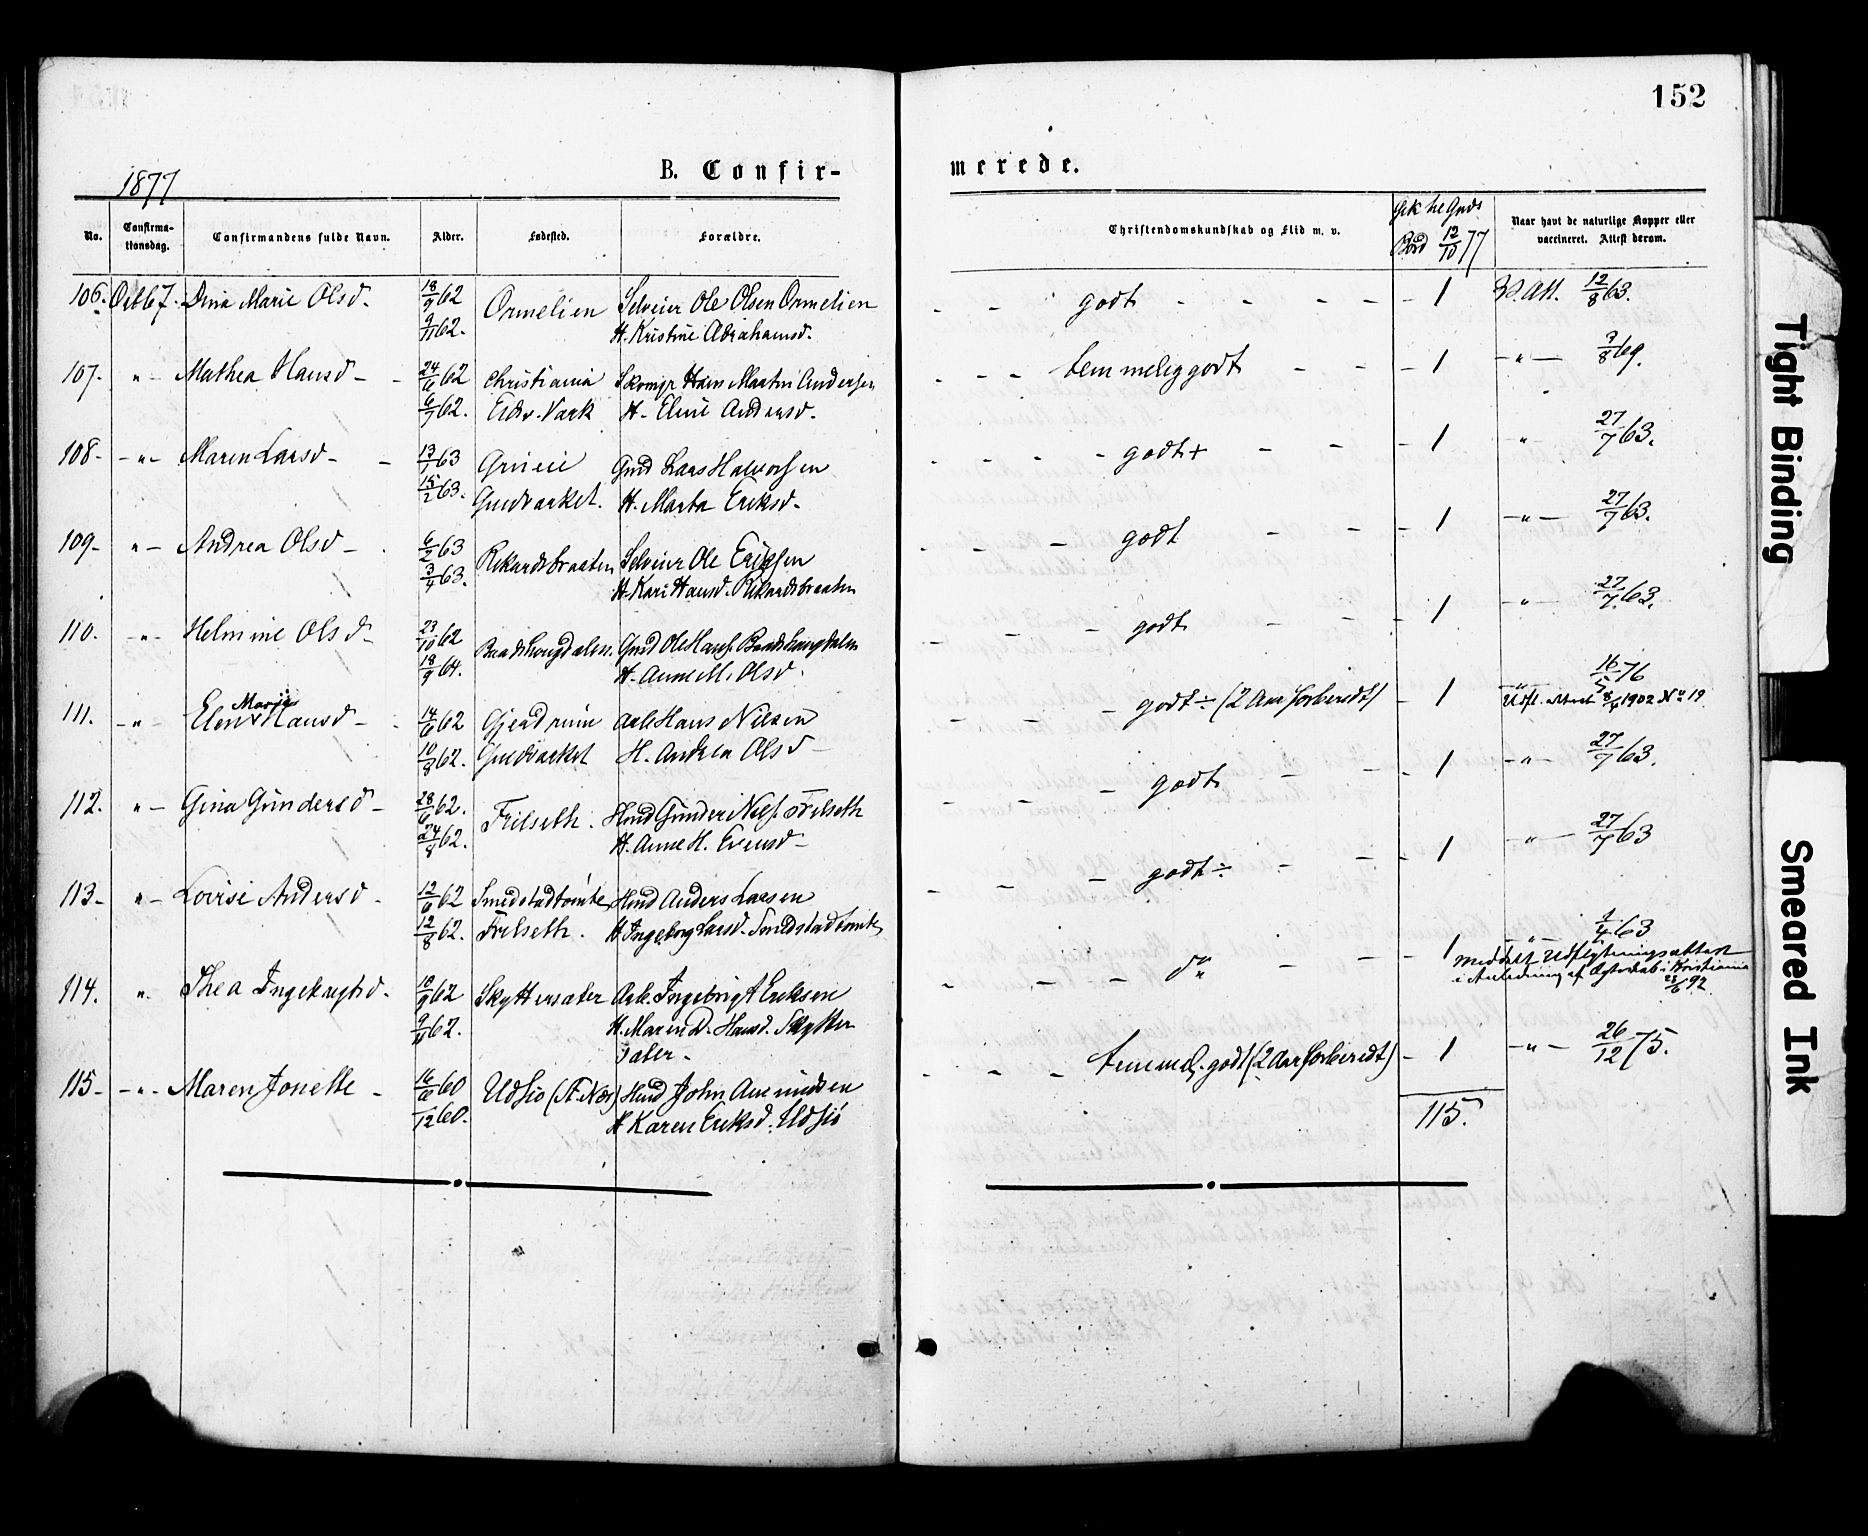 152
1877
B. Confir-
merede.
No.
Confirma-
tionsdag.
Confirmandens fulde Navn.
Alder.
Fødested.
Forældre.
Christendomskundskab og Flid m. v.
Gik til Guds
Bord 12/10 77
Naar havt de naturlige Kopper eller
vaccineret. Attest derom.
106. Octb 7. Dina Marie Olsd. 18/9 62 Ormelien Selveier Ole Olsen Ormelien - - godt - - - - - 1 V. Att. 12/8 63.
9/11 62. H. Kristine Abrahamsd.
107. " - Mathea Hansd - - 24/6 62 Christiania Hans Martin Andersen - - - temmelig godt - - - 1 - " - 3/8 69.
6/7 62. Eidsv. Værk H. Eline Andersd.
108 - - " - Maren Larsd - - 13/1 63 Gruen Gmd Lars Halvorsen - - - - godt+ - - - 1 " 27/7 63.
15/2 63. Guldværket. H. Marta Eriksd.
109 - " - Andrea Olsd - 6/2 63 Rikardsbraaten Selveier Ole Eriksen - - - godt - - - 1 - " - 27/7 63.
3/4 63. H. Kari Hansd. Rikardsbraaten
110. - " - Helmine Olsd - 23/10 62 Baadshaugdalen. Gmd Ole Hans. Baadshaugdalen - - - godt - - - 1 " - 27/7 63.
18/9 64. H. Anne M. Olsd.
111. - " Elen Marie Hansd - 14/6 62 Gjerdrum Arb Hans Nilsen - - - godt÷ (2 Aar forberedt) - 1 - " - 16/5 76
Udfl. attest 1902 No 19
10/8 62. Guldværket H. Andrea Olsd -
112. " - Gina Gundersd - 28/6 62. Frilseth. Hmd Gunder Nils. Frilseth - - - godt - - - 1 - " - 27/7 63.
24/8 62. H. Anne H. Evensd -
113 - " - Lovise Andersd - 12/6 62 Smedstadtomte Hmd Anders Larsen - - - godt÷ - - - 1 - " - 27/7 63
12/8 62. Frilseth. H. Ingeborg Larsd. Smedstadtomte
114. " - Thea Ingebrigtsd. 10/9 62 Skyttersæter Arb. Ingebrigt Eriksen - - - do - - - 1 - " - 4/4 63
Meddelt Udflytningsattest
i Anledning af Ægteskab i Kristiania
28/6 92.
9/11 62. H. Maren D. Hansd. Skytter
sæter -
115 - - " - Maren Jonette - 16/6 60 Udsiø (N. Næs) Hmd John Amundsen - - - temmel. godt (2 Aar forberedt) - 1 - " - 26/12 75.
/12 60. H Karen Eriksd. Udsiø
115.
Tight Binding
Smeared Ink